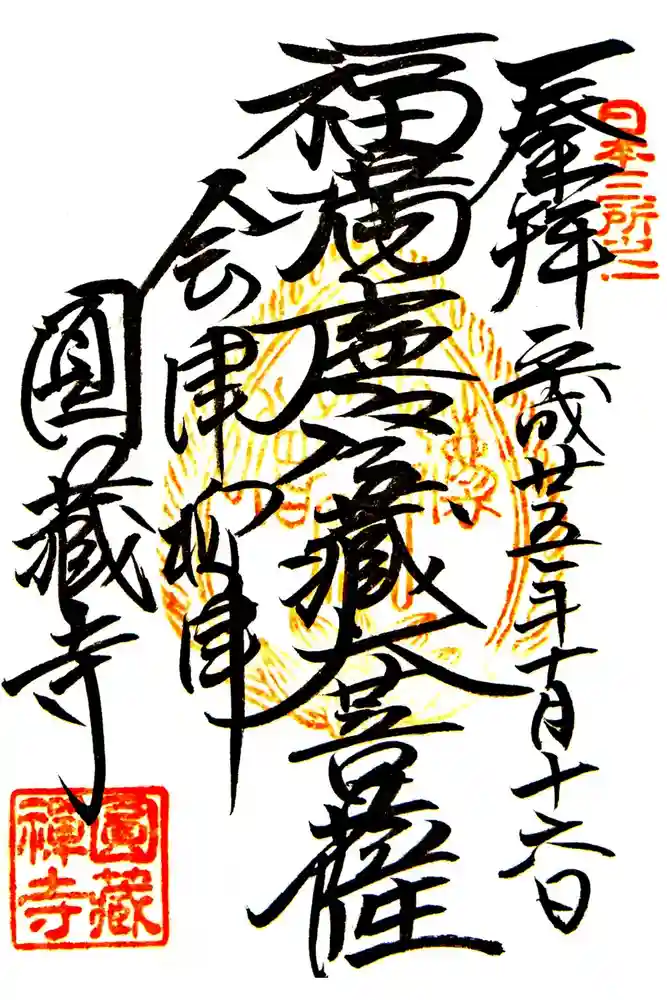 日本三所之一
奉拝 平成廿五年十月十六日
福満虚空藏大菩薩
会津柳津
圓藏寺
圓藏禪寺